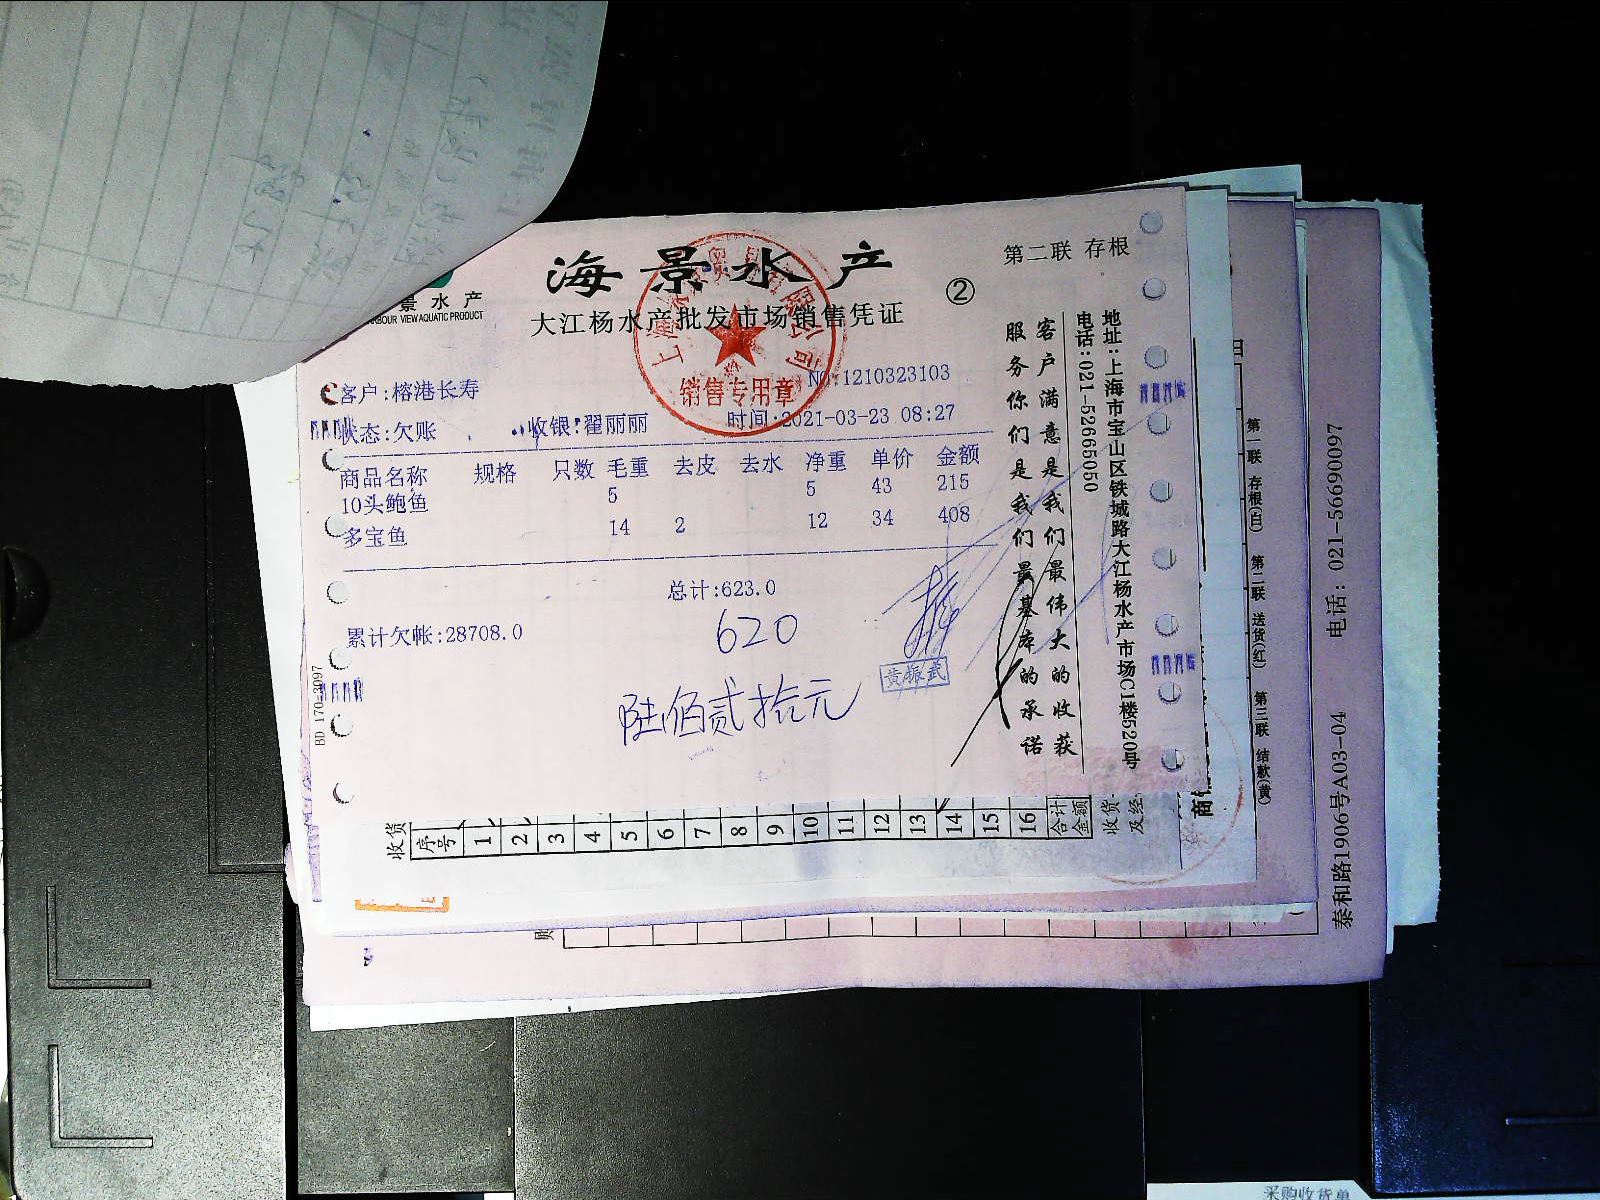 海景水产
第二联 存根
②
景水产
RBOUR VIEW AQUATIC PRODUCT
大江杨水产批发市场销售凭证
客户:榕港长寿
NO:1210323103
状态:欠账
收银:翟丽丽
时间:2021-03-23 08:27
销售专用章
商品名称 规格 只数 毛重 去皮 去水 净重 单价 金额
10头鲍鱼 5 5 43 215
多宝鱼 14 2 12 34 408
总计:623.0
620
累计欠帐:28708.0
黄振武
陆佰贰拾元
客户满意是我们最伟大的收获
服务你们是我们最基本的承诺
地址:上海市宝山区铁城路大江杨水产市场C1楼520号
电话:021-52665050
BD 170-3097
收货
序号 1 2 3 4 5 6 7 8 9 10 11 12 13 14 15 16 合计金额
收货
及经
商
第一联 存根(白) 第二联 送货(红) 第三联 结款(黄)
泰和路1906号A03-04 电话: 021-56690097
采购收货单